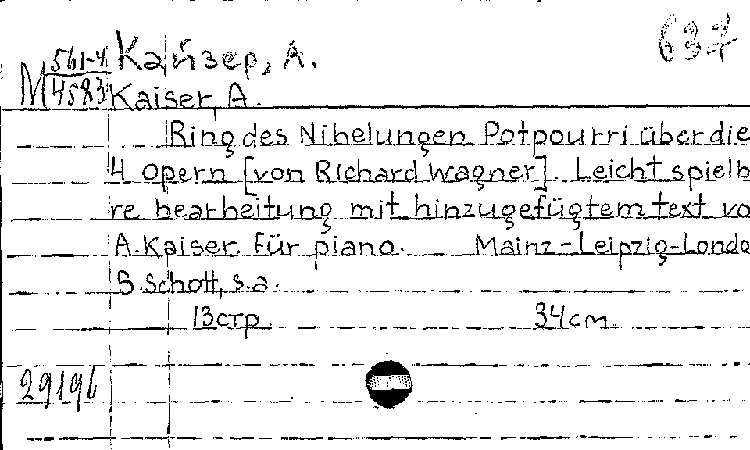 637
561-4 Кайзер, А.
М 4583 Kaiser, A.
Ring des Nibelungen. Potpourri über die
4 opern [von Richard Wagner]. Leicht spielb
re bearbeitung mit hinzugefügtem text vo
A. Kaiser. Für piano. Mainz-Leipzig-Londo
B. Schott, s.a.
13 стр. 34 см.
29196